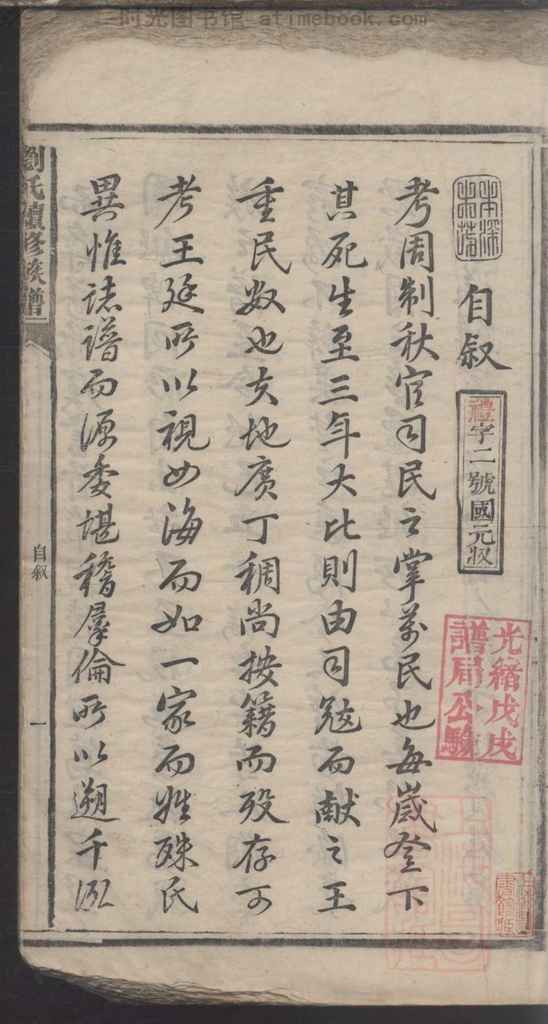 时光图书馆 - atimebook.com
自叙
禮字二號國元收
光緒戊戌
譜局公驗
考周制秋官司民之掌萬民也每歲登下
其死生至三年大比則由司寇而獻之王
重民数也夫地廣丁稠尚按籍而殁存可
考王廷所以視四海而如一家而姓殊氏
異惟誌譜而源委堪稽羣倫所以遡千
劉氏續修族譜
自叙
一